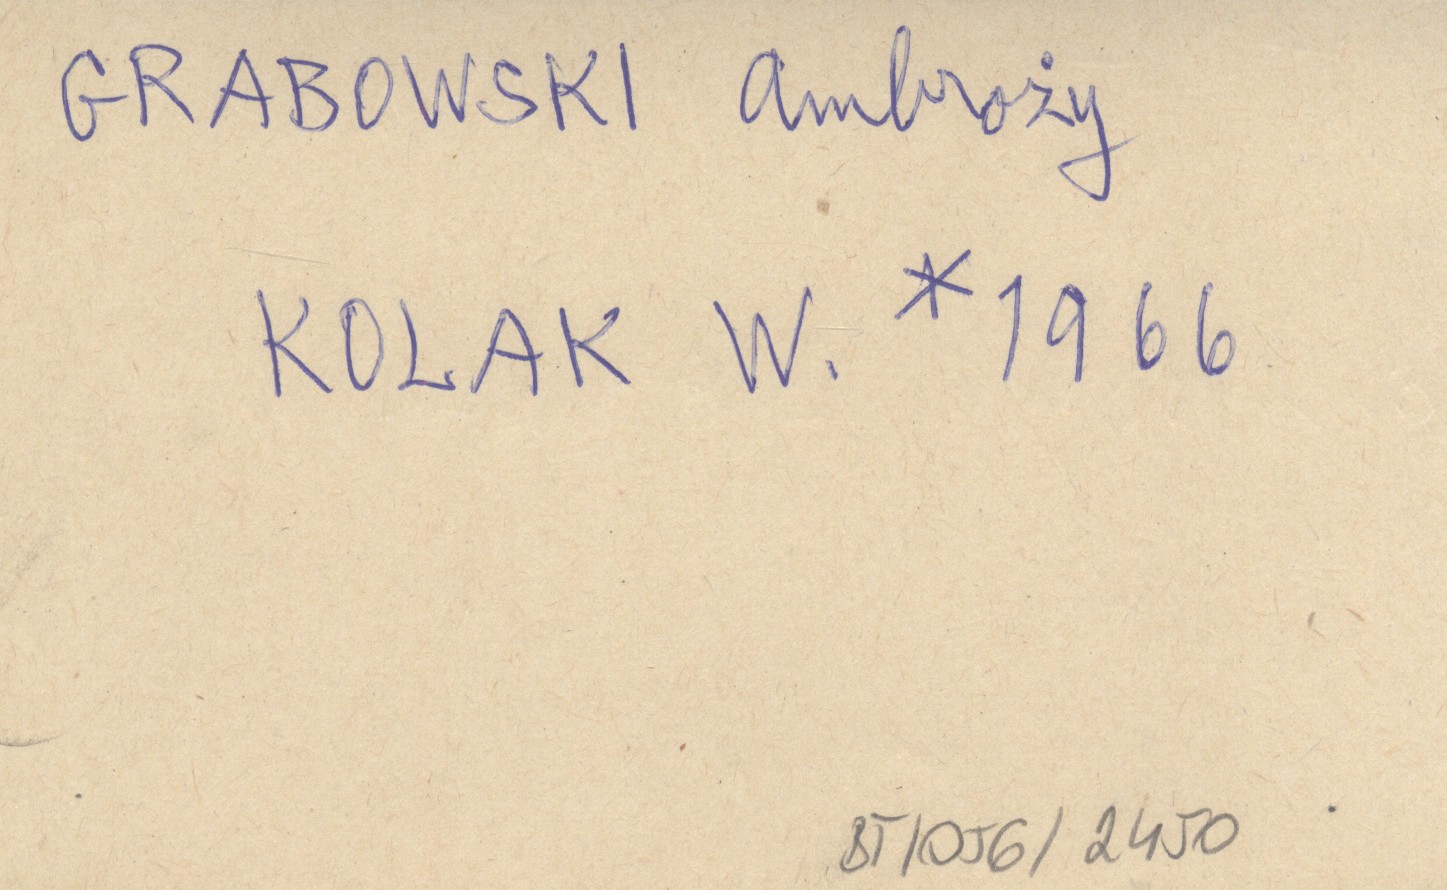 GRABOWSKI Ambroży
KOLAK W. *1966
BT/056/2450